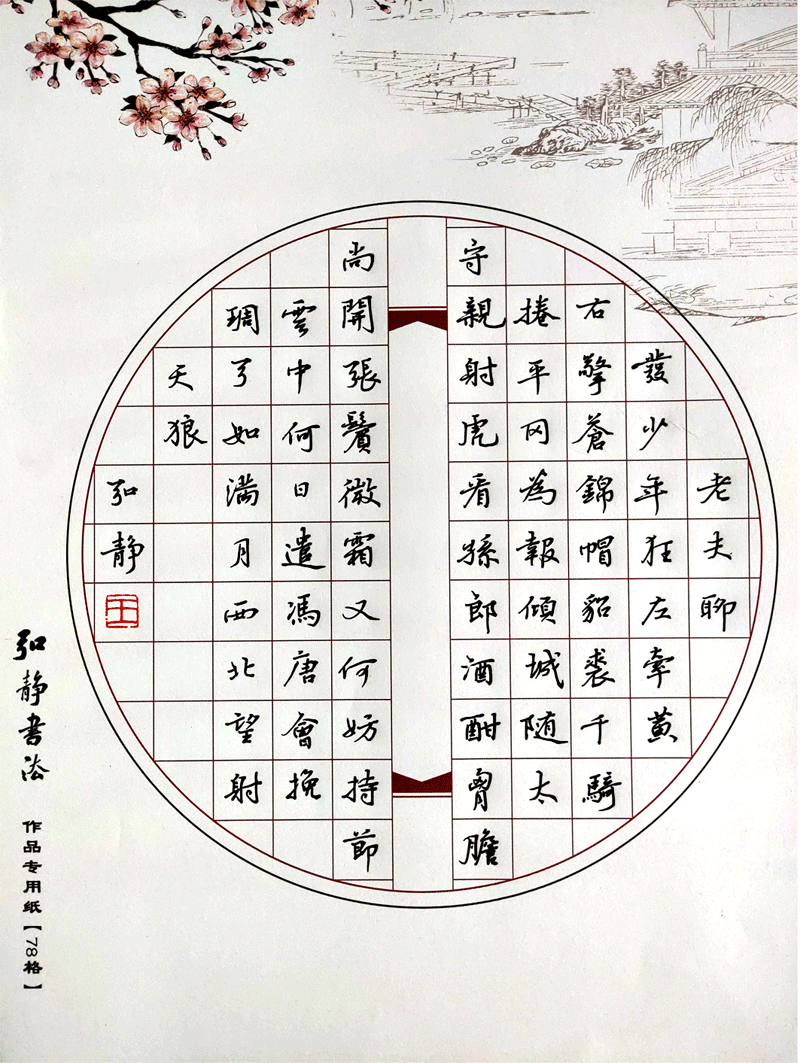 老夫聊
發少年狂左牽黄
右擎蒼錦帽貂裘千騎
捲平冈為報傾城随太
守親射虎看孫郎酒酣胷膽
尚開張鬢微霜又何妨持節
雲中何日遣馮唐會挽
琱弓如满月西北望射
天狼
弘静
王
弘静書法
作品专用纸【78格】